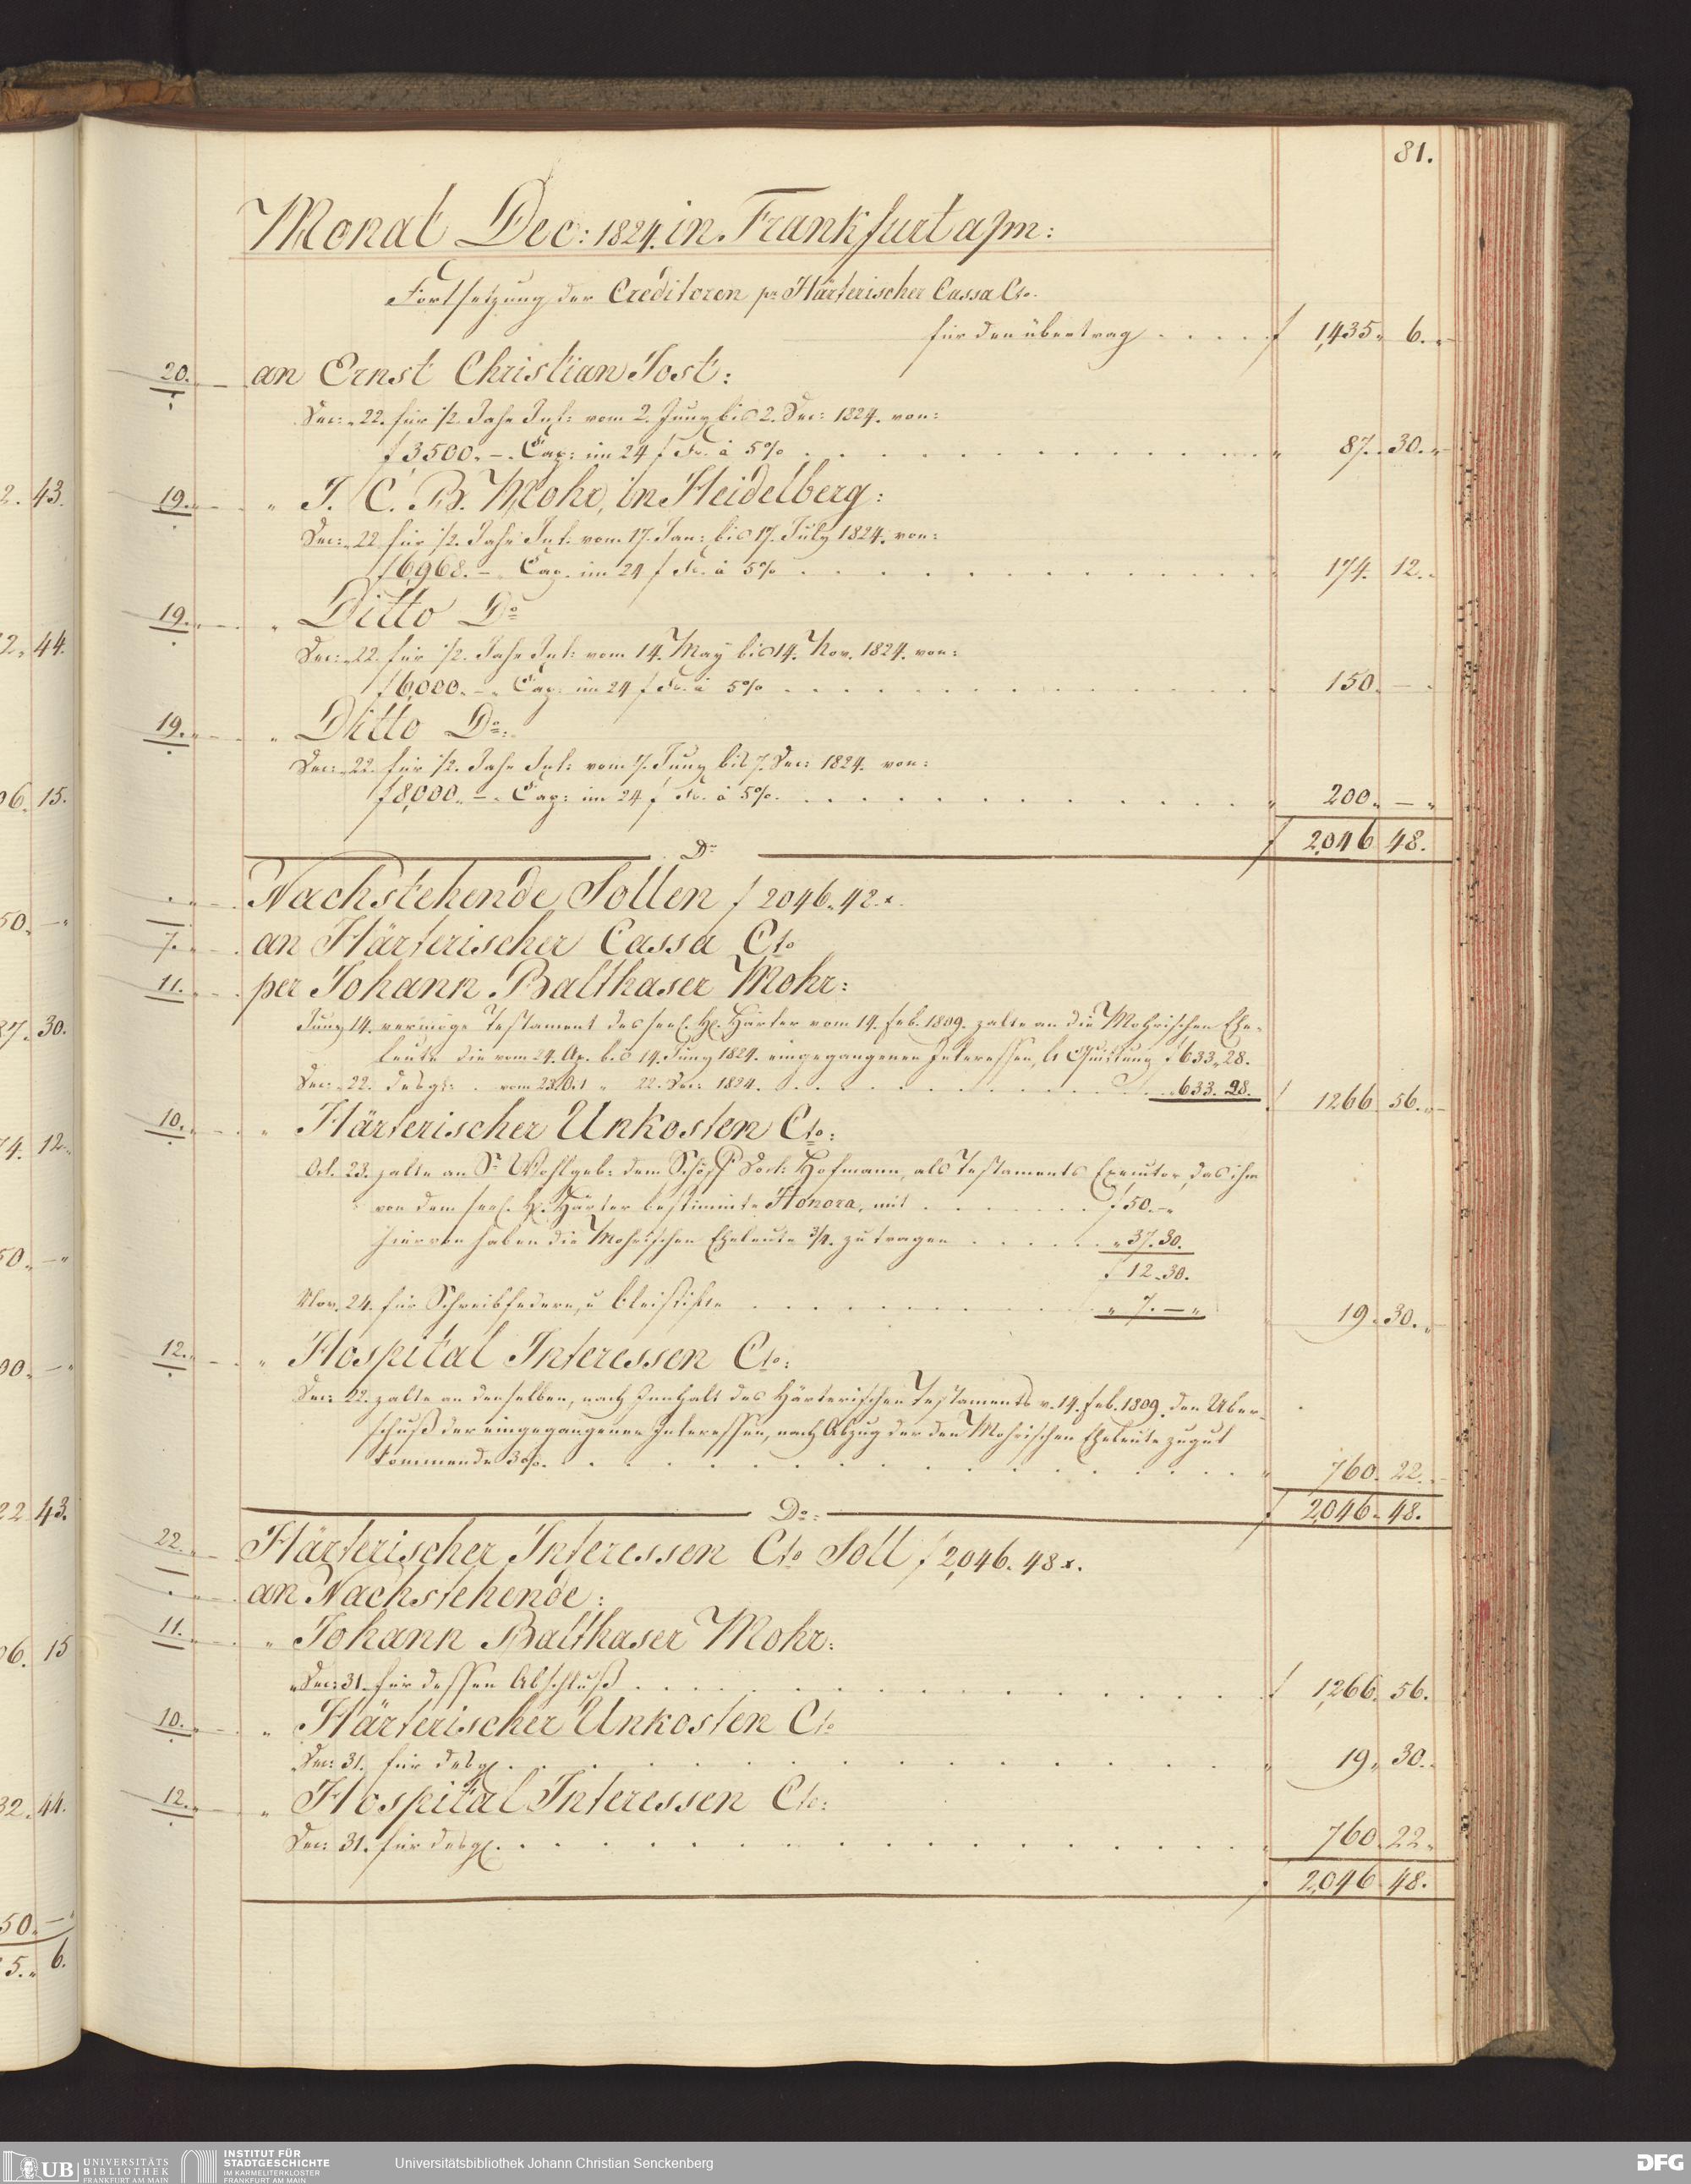 81.
Monat Dec: 1824. in Frankfurt a/m:
Fortsetzung der Creditoren pr Härterischer Cassa Cto.
für den übertrag . . . . f 1,435. 6.
20. an Ernst Christian Jost:
Dec: 22. für 1/2. Jahr Int: vom 2. Juny bis 2. Dec: 1824. von:
f 3500. – Cap: im 24 f Fs. à 5% . . . 87. 30.
19. " J. C. B. Mohr, in Heidelberg:
Dec: 22 für 1/2. Jahr Int: vom 17. Jan: bis 17. July 1824. von:
f 6,968. – Cap. im 24 f Fs. à 5% . . . 174. 12.
19. " Ditto Do
Dec: 22. für 1/2. Jahr Int: vom 14. May bis 14. Nov. 1824. von:
f 6,000. – Cap: im 24 f Fs. à 5% . . . 150. –
19. " Ditto Do:
Dec: 22. für 1/2. Jahr Int: vom 7. Juny bis 7. Dec: 1824. von:
f 8,000. – Cap: im 24 f Fs. à 5%. . . . 200. –
f 2,046 48.
Do
Nachstehende Sollen f 2046. 42 x.
7. an Härterischer Cassa Cto
11. per Johann Balthaser Mohr:
Juny 14. vermöge Testament des seel. H. Härter vom 14. Feb. 1809. zalte an die Mohrischen Ehe-
leute die vom 24. Ap. bis 14. Juny 1824. eingegangenen Interessen, lt Quittung f 633. 28.
Dec: 22. desgl: . vom 23. Oct " 22. Dec: 1824. . . . " 633. 28. f 1266 56.
10. " Härterischer Unkosten Cto:
Oct. 23. zalte an Sr Wohlgeb: dem Schöff Doct: Hofmann, als Testaments Executor, das ihm
von dem seel. H. Härter bestimmte Honora, mit . . . f 50. –
hiervon haben die Mohrischen Eheleute 3/4. zu tragen . . . " 37. 30.
f 12. 30.
Nov. 24. für Schreibfedern, u bleistifte . . . " 7. – " 19. 30.
12. " Hospital Interessen Cto:
Dec: 22. zalte an denselben, nach Innhalt des Härterischen Testaments v. 14. Feb. 1809. den Über-
schuß der eingegangenen Interessen, nach Abzug der den Mohrischen Eheleute zugut
kommende . . . " 760. 22.
f 2,046. 48.
Do:
22. Härterischer Interessen Cto Soll f 2,046. 48 x.
an Nachstehende:
11. " Johann Balthaser Mohr:
Dec: 31. für dessen Abschluß . . . f 1,266. 56.
10. " Härterischer Unkosten Cto
Dec: 31. für desgl. . . . " 19. 30.
12. " Hospital Interessen Cto:
Dec: 31. für desgl. . . . " 760. 22.
2,046 48.
2. 43.
2. 44.
06. 15.
50. –
37. 30.
74. 12.
50. –
00. –
22 43.
06. 15
32. 44.
50. –
5. 6.
UB UNIVERSITÄTS
BIBLIOTHEK
FRANKFURT AM MAIN
INSTITUT FÜR
STADTGESCHICHTE
IM KARMELITERKLOSTER
FRANKFURT AM MAIN
Universitätsbibliothek Johann Christian Senckenberg
DFG